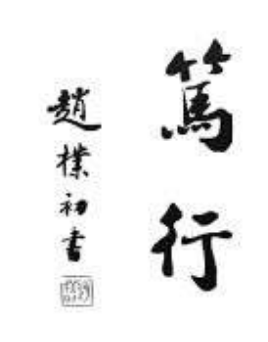 篤行
趙樸初書